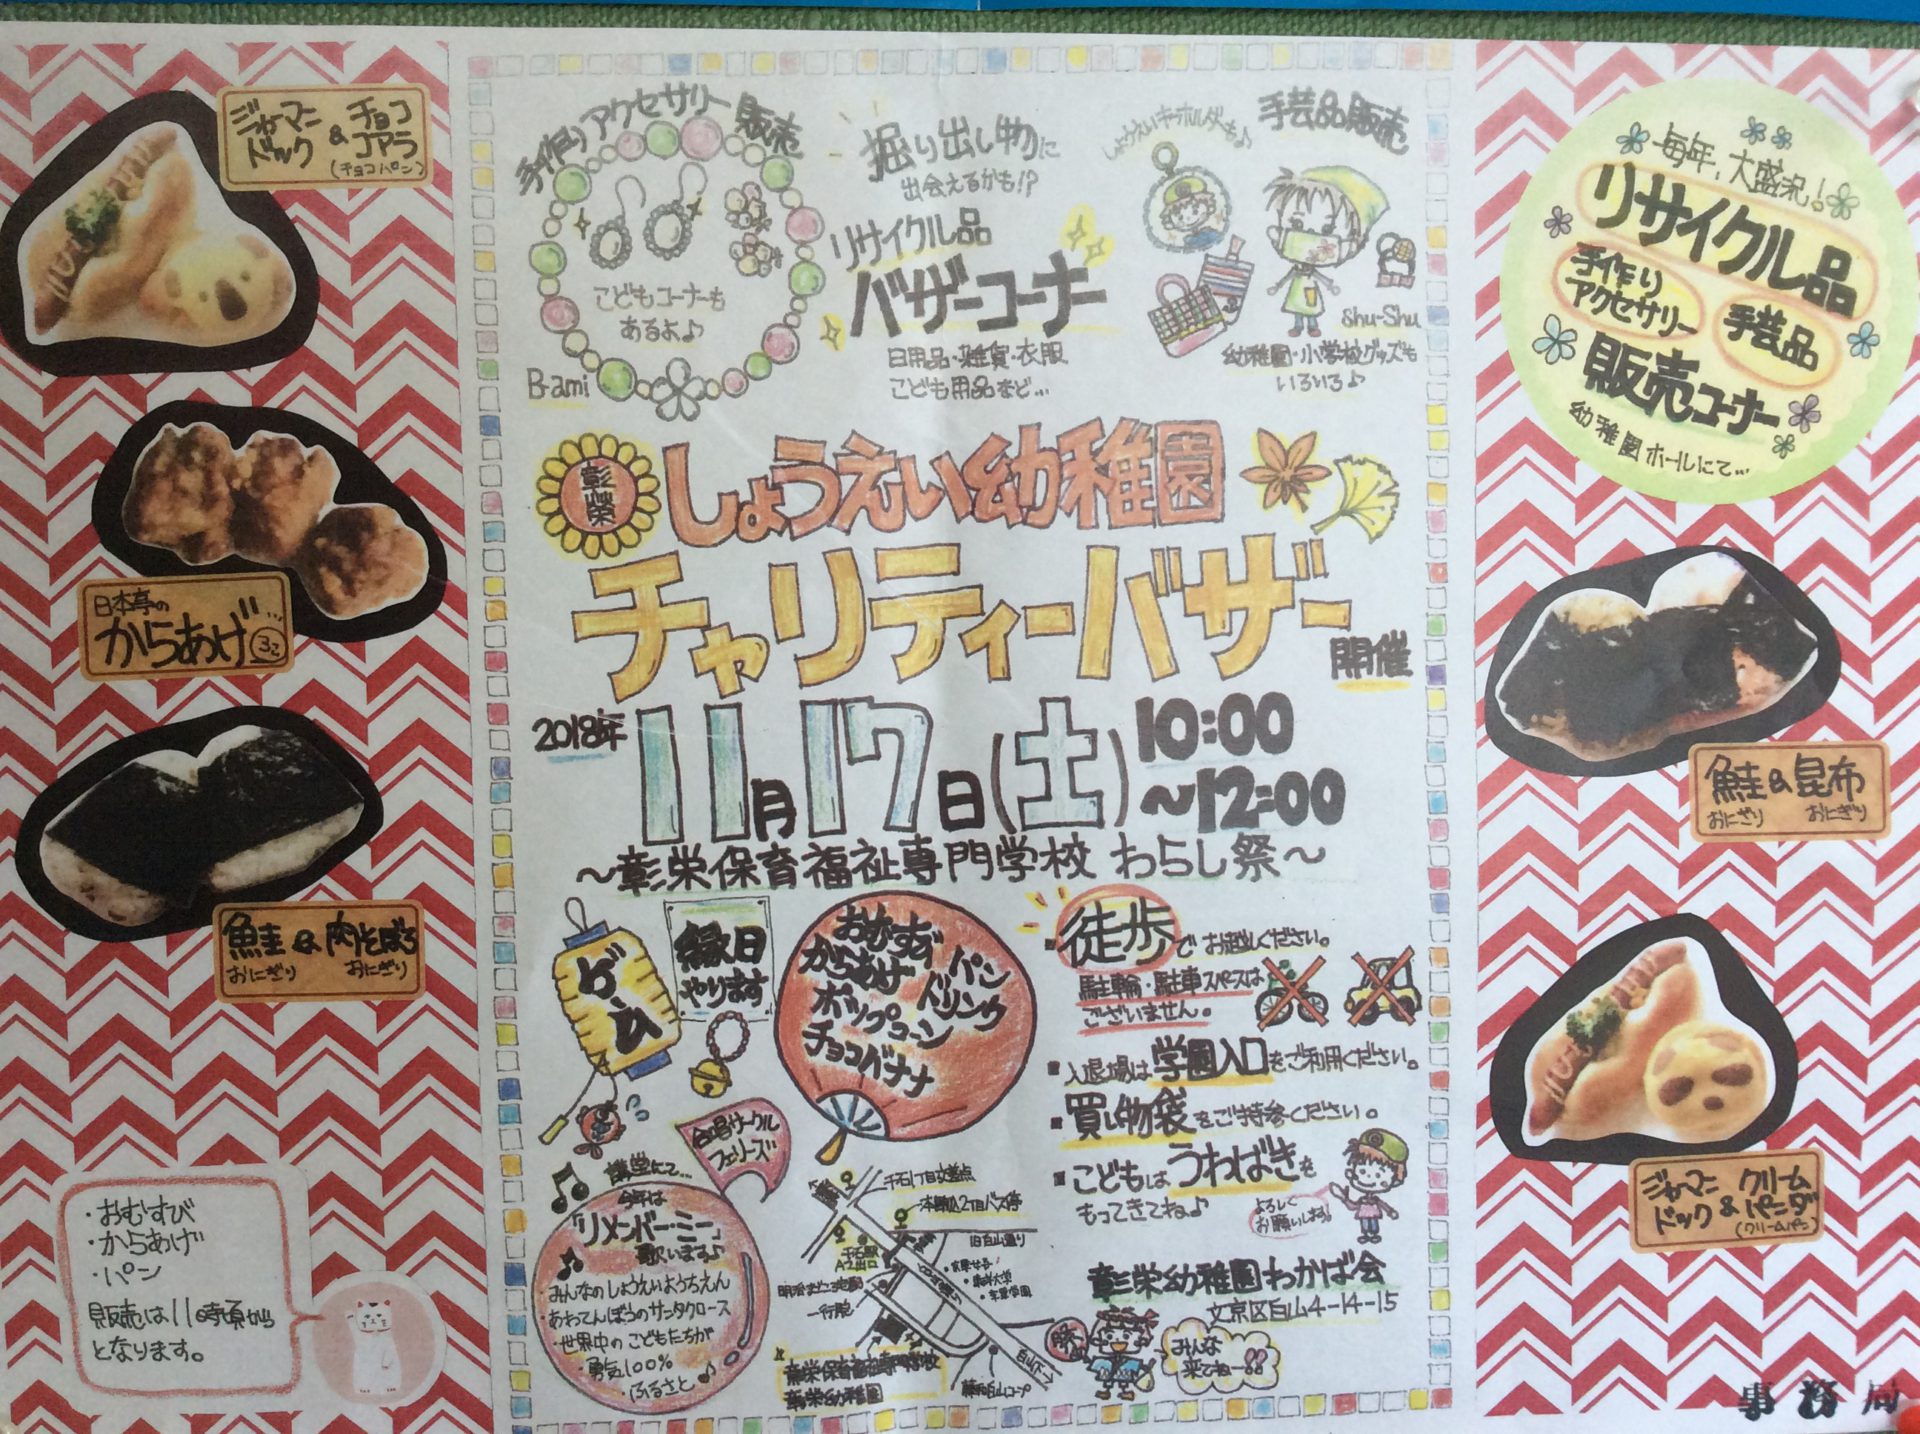 ジャーマンドック
&
チョココアラ
(チョコパン)
日本亭の
からあげ 3コ
鮭&肉そぼろ
おにぎり おにぎり
・おむすび
・からあげ
・パン
販売は11時頃から
となります。
手作りアクセサリー販売
こどもコーナーも
あるよ♪
B-ami
掘り出し物に
出会えるかも!?
リサイクル品
バザーコーナー
日用品・雑貨・衣服
こども用品など…
しょうえいキーホルダーも♪
手芸品販売
shu-shu
幼稚園・小学校グッズも
いろいろ♪
彰栄
しょうえい幼稚園
チャリティーバザー
開催
2018年
11月17日(土)
10:00
~12:00
~彰栄保育福祉専門学校 わらし祭~
ゲーム
縁日
やります
おむすび
からあげ
ポップコーン
チョコバナナ
パン
ドリンク
徒歩でお越しください。
駐輪・駐車スペースは
ございません。
入退場は学園入口をご利用ください。
買い物袋をご持参ください。
こどもはうわばきを
もってきてね♪
よろしく
お願いします!
合唱サークル
フェリーズ
講堂にて…
今年は
「リメンバーミー」
歌います♪
・みんなのしょうえいようちえん
・あわてんぼうのサンタクロース
・世界中のこどもたちが
・勇気100%
・ふるさと♪
千石1丁目交差点
本駒込2丁目バス停
旧白山通り
千石駅
A1出口
明治または地図
一行院
白山通り
白山下
彰栄保育福祉専門学校
彰栄幼稚園
彰栄幼稚園わかば会
文京区白山4-14-15
みんな
来てねー!!
毎年、大盛況!
リサイクル品
手作り
アクセサリー
手芸品
販売コーナー
幼稚園ホールにて…
鮭&昆布
おにぎり おにぎり
ジャーマンドック
&
クリームパンダ
(クリームパン)
事務局